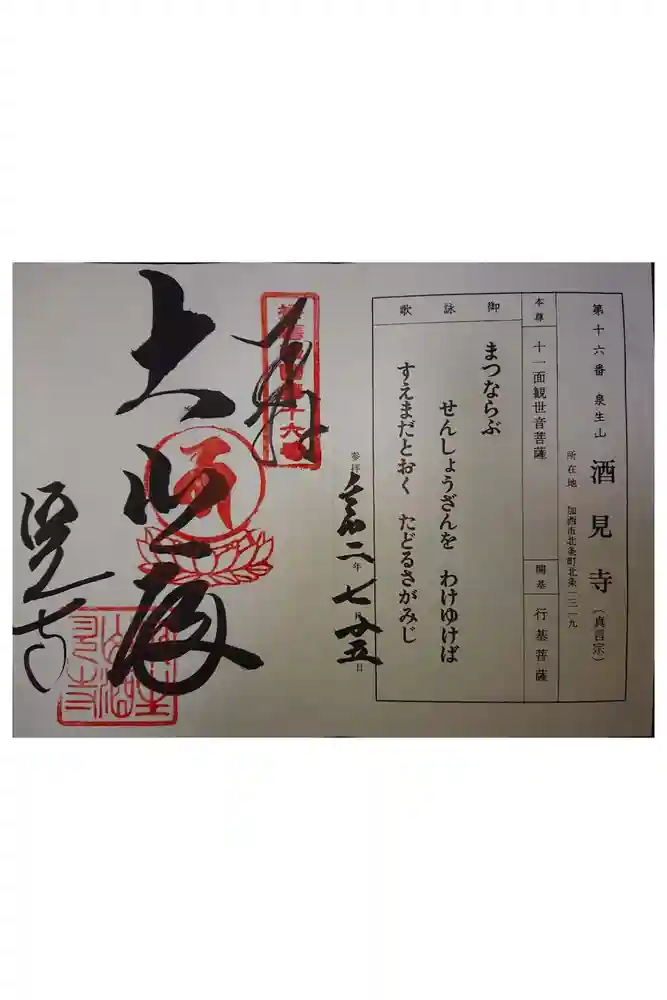 第十六番 泉生山 酒見寺(真言宗)
所在地 加西市北条町北条一三一九
本尊 十一面観世音菩薩
開基 行基菩薩
御詠歌
まつならぶ
せんしょうざんを わけゆけば
すえまだとおく たどるさがみじ
参拝 令和二年七月廿五日
奉拝
大悲殿
酒見寺